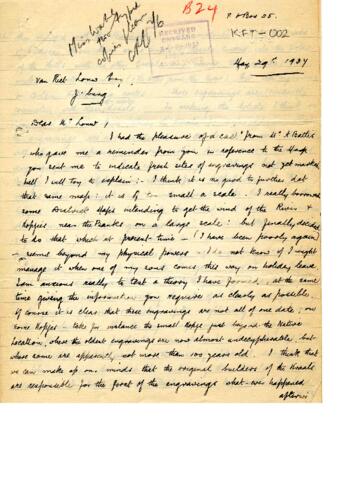 B24
P O Box 05.
KFT-002
RECEIVED
May 29th 1934
van Riet Louw Esq
Dear Mr Louw,
I had the pleasure of a call from Mr A
who gave me a reminder from you in reference to the Map
you sent me to indicate fresh sites of engravings not yet marked
well I will try to explain:- I think it is no good to further dot
that same map: it is of too small a scale. I really borrowed
some District Maps intending to get the wind of the River &
Kopjes near the Banks on a large scale: but finally decided
to do that which at present time - (I have been poorly again)
- seems beyond my physical powers. I do not know if I might
manage it when one of my sons comes this way on holiday leave
I am anxious really to test a theory I have formed, at the same
time giving the information you require as clearly as possible.
Of course it is clear that these engravings are not all of one date; on
some Kopjes - take for instance the small Kopje just beyond the Native
Location, where the oldest engravings are now almost undecypherable, but
where some are apparently not more than 100 years old. I think that
we can make up our minds that the original builders of the Kraals
are responsible for the first of the engravings what-ever happened
afterwards